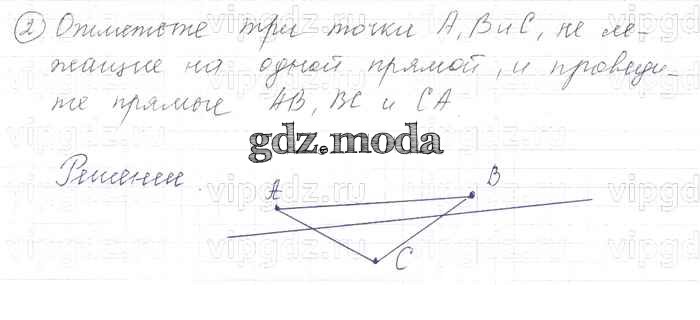 2 Отметьте три точки A, B и C, не ле-
жащие на одной прямой, и проведи-
те прямые AB, BC и CA.
gdz.moda
Решение.
A
B
C
vipgdz.ru